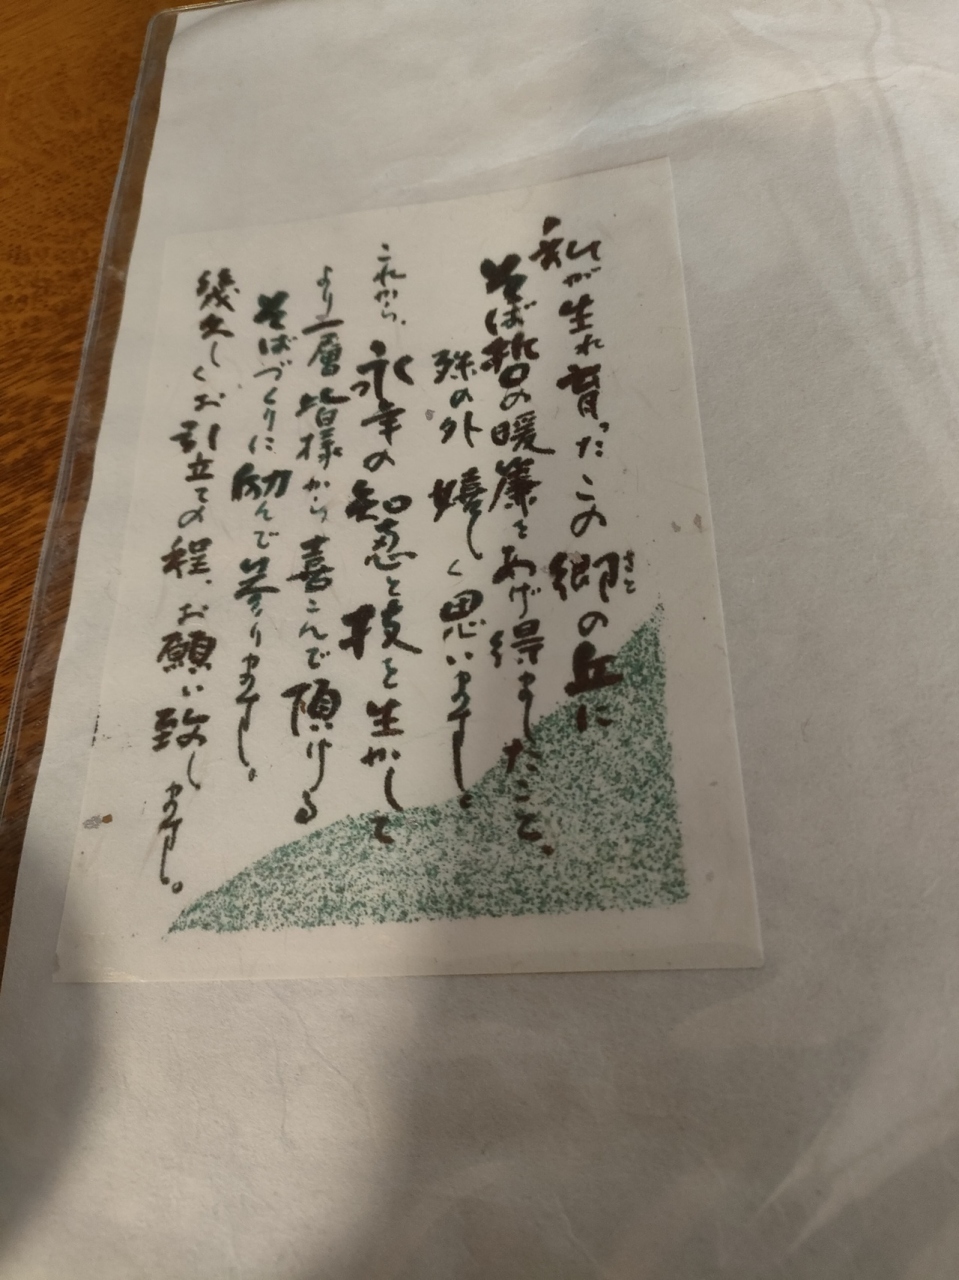 私が生れ育ったこの郷の丘に
さと
そば哲の暖簾をあげ得ましたこと、
殊の外嬉しく思います。
これから、永年の知恵と技を生かして
より一層皆様から喜こんで頂ける
そばづくりに励んで参ります。
幾久しくお引立ての程、お願い致します。